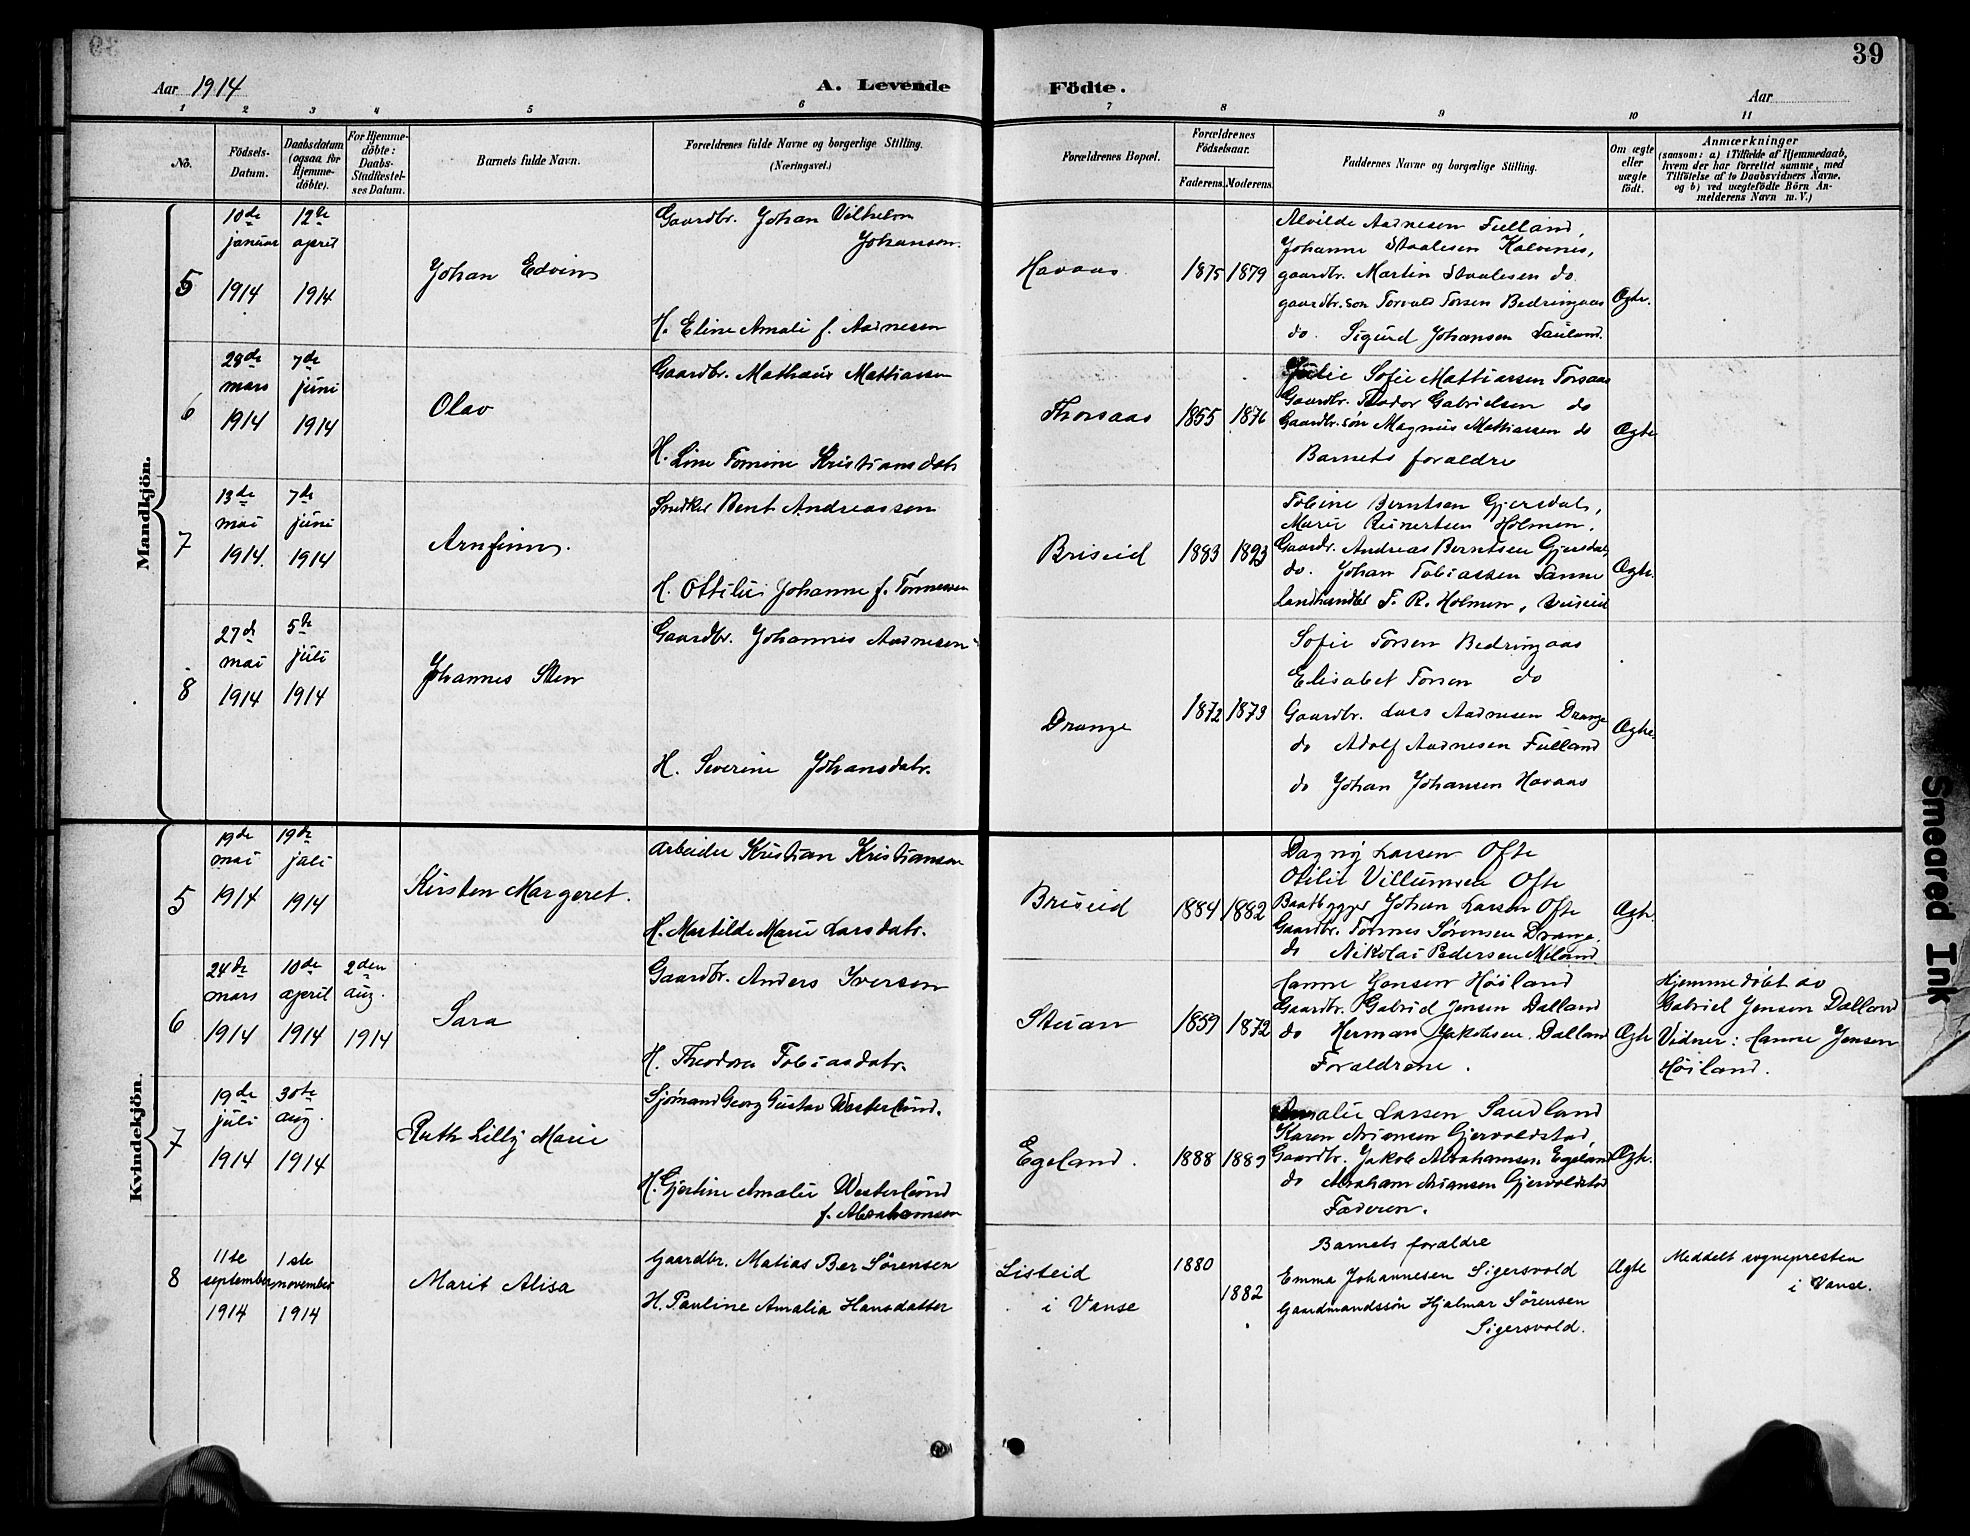 39
Aar 1914
A. Levende
Födte.
Aar
1 2 3 4 5 6 7 8 9 10 11
No.
Födsels-
Datum.
Daabsdatum
(ogsaa for
Hjemme-
döbte).
For Hjemme-
döbte:
Daabs-
Stadfæstel-
ses Datum.
Barnets fulde Navn.
Forældrenes fulde Navne og borgerlige Stilling.
(Næringsvei.)
Forældrenes Bopæl.
Forældrenes
Födselsaar.
Faderens. Moderens.
Faddernes Navne og borgerlige Stilling.
Om ægte
eller
uægte
födt.
Anmærkninger
(saasom: a) i Tilfælde af Hjemmedaab,
hvem der har forrettet samme, med
Tilföielse af to Daabsvidners Navne.
og b) ved uægtefödte Börn An-
melderens Navn m. V.)
Mandkjön.
5
10de
januar
1914
12te
april
1914
Johan Edvin
Gaardbr. Johan Vilhelm
Johansen.
H. Eline Amali f. Aadnesen
Havaas
1875 1879
Alvilde Aadnesen Fulland,
Johanne Staalesen Kalvenes,
gaardbr. Martin Staalesen do
gaardbr. søn Torvald Torsen Bedringaas
do. Sigurd Johansen Sauland.
Ægte.
6
28de
mars
1914
7de
juni
1914
Olav
Gaardbr. Mathæus Mattiassen
H. Line Tomine Kristiansdatr
Thorsaas
1855 1876
Julie Sofie Mattiassen Torsaas
Gaardbr. Teodor Gabrielsen do
Gaardbr. søn Magnus Mattiassen do
Barnets foraldre
Ægte
7
13de
mai
1914.
7de
juni
1914
Arnfinn.
Snedker Bent Andreassen
H. Ottilie Johanne f. Tønnessen
Briseid
1883 1893
Tobine Berntsen Gjersdal,
Marie Reinertsen Holmen,
Gaardbr. Andreas Berntsen Gjersdal,
do. Johan Tobiassen Sanne
Landhandler T. R. Holmen, Briseid
Ægte.
8
27de
mai
1914
5te
juli
1914
Johannes Sten
Gaardbr. Johannes Aadnesen
H. Severine Johansdatr.
Drange
1872 1873
Sofie Torsen Bedringaas
Elisabet Torsen do
Gaardbr. Lars Aadnesen Drange
do Adolf Aadnesen Fulland
do Johan Johansen Havaas
Ægte.
Kvindekjön.
5
19de
mai
1914
19de
juli
1914
Kirsten Margeret.
Arbeider Kristian Kristiansen
H. Martilde Marie Larsdatr.
Briseid
1884 1882
Dagny Larsen Ofte
Otilie Villumsen Ofte
Baatbygger Johan Larsen Ofte
Gaardbr. Tønnes Sørensen Drange.
do Nikolai Pedersen Meland.
Ægte.
6
24de
mars
1914
10de
april
1914
2den
aug.
1914
Sara
Gaardbr. Anders Iversen
H. Theodora Tobiasdatr.
Steian
1859 1872
Hanne Jensen Høiland
Gaardbr. Gabriel Jensen Dalland
do Herman Jakobsen. Dalland
Foraldrene.
Ægte
Hjemmedøbt av
Gabriel Jensen Dalland
Vidner: Hanne Jensen
Høiland.
7
19de
juli
1914
30te
aug.
1914
Ruth Lilly Marie
Sjømand Georg Gustav Westerlund.
H. Gjertine Amalie Westerlund
f. Abrahamsen
Egeland.
1888 1889
Amalie Larsen Sandland
Karen Ariansen Gjervoldstad,
Gaardbr. Jakob Abrahamsen. Egeland
do Abraham Ariansen Gjervoldstad
Faderen.
Ægte.
8
11te
september
1914
1ste
november
1914
Marit Alisa
Gaardbr. Matias Ber Sørensen
H. Pauline Amalia Hansdatter
Listeid
i Vanse
1880
1882
Barnets foraldre
Emma Johannesen Sigersvold
Gaardmandssøn Hjalmar Sørensen
Sigersvold.
Ægte
Meddelt sognepresten
i Vanse.
Smeared Ink